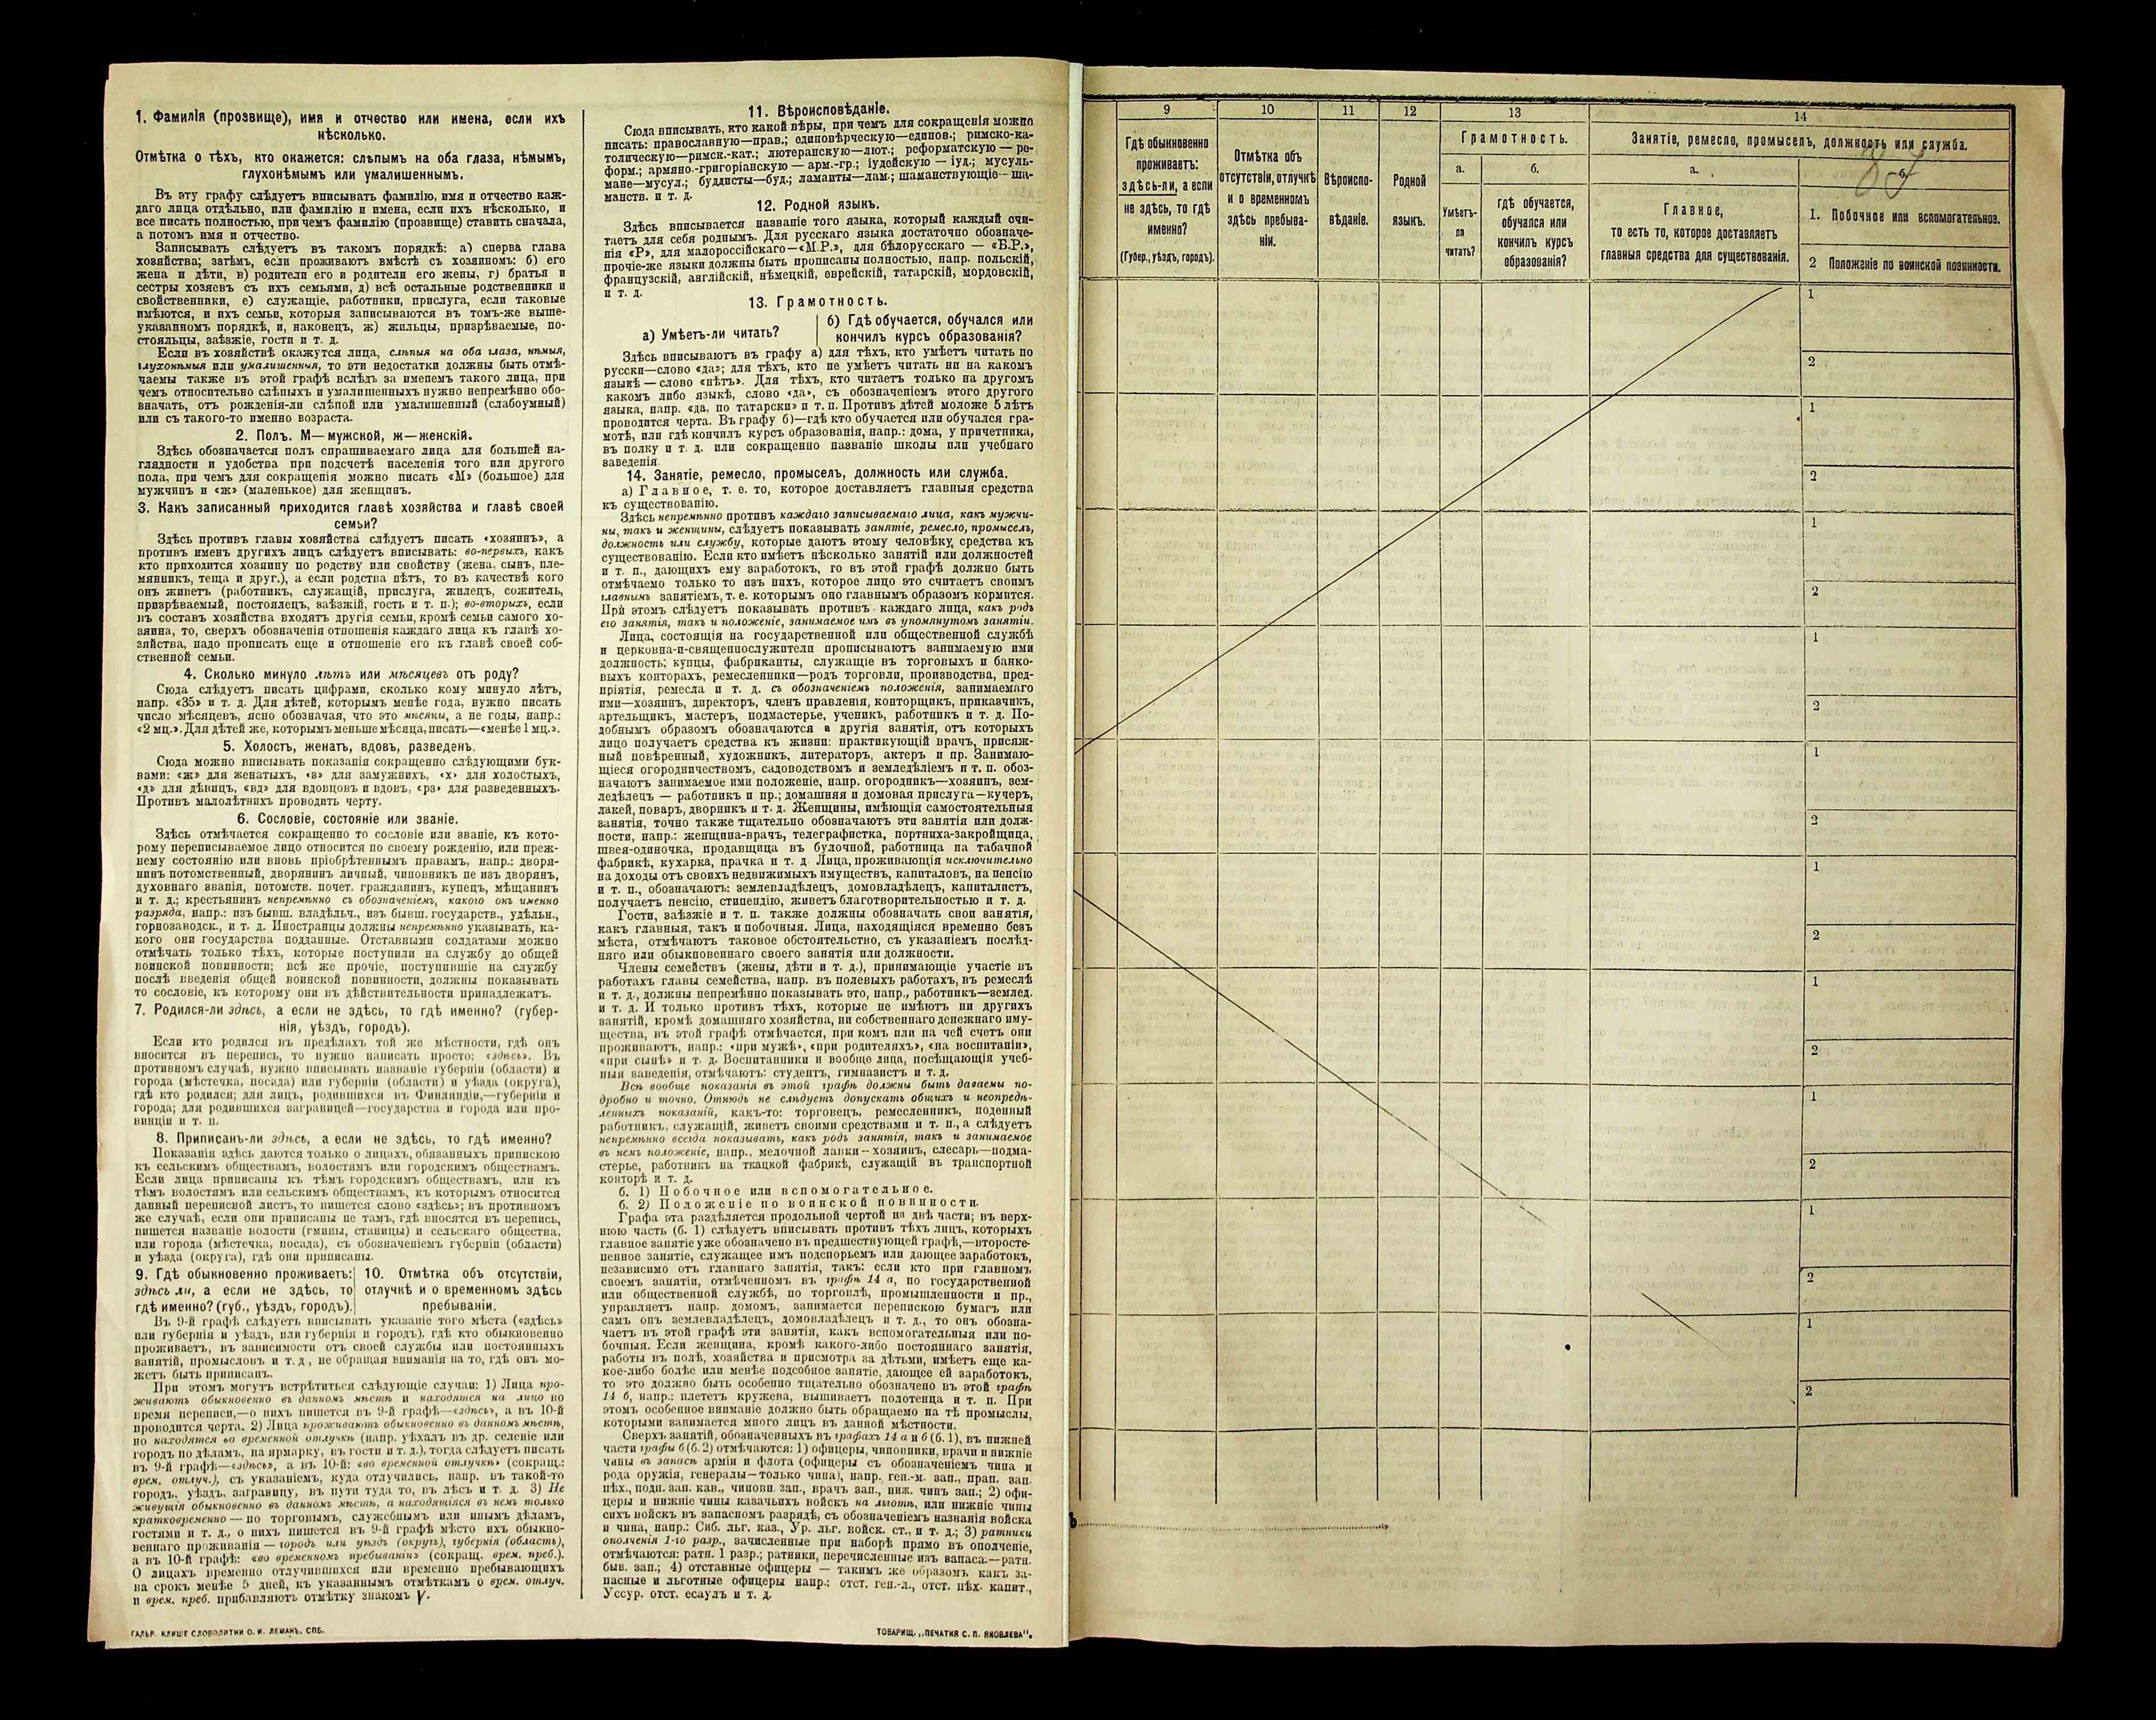 1. Фамилія (прозвище), имя и отчество или имена, если ихъ
нѣсколько.
Отмѣтка о тѣхъ, кто окажется: слѣпымъ на оба глаза, нѣмымъ,
глухонѣмымъ или умалишеннымъ.
Въ эту графу слѣдуетъ вписывать фамилію, имя и отчество каж-
даго лица отдѣльно, или фамилію и имена, если ихъ нѣсколько, и
все писать полностью, при чемъ фамилію (прозвище) ставить сначала,
а потомъ имя и отчество.
Записывать слѣдуетъ въ такомъ порядкѣ: а) сперва глава
хозяйства; затѣмъ, если проживаютъ вмѣстѣ съ хозяиномъ: б) его
жена и дѣти, в) родители его и родители его жены, г) братья и
сестры хозяевъ съ ихъ семьями, д) всѣ остальные родственники и
свойственники, е) служащіе, работники, прислуга, если таковые
имѣются, и ихъ семьи, которыя записываются въ томъ-же выше-
указанномъ порядкѣ, и, наконецъ, ж) жильцы, призрѣваемые, по-
стояльцы, заѣзжіе, гости и т. д.
Если въ хозяйствѣ окажутся лица, слѣпыя на оба глаза, нѣмыя,
глухонѣмыя или умалишенныя, то эти недостатки должны быть отмѣ-
чаемы также въ этой графѣ вслѣдъ за именемъ такого лица, при
чемъ относительно слѣпыхъ и умалишенныхъ нужно непремѣнно обо-
значать, отъ рожденія-ли слѣпой или умалишенный (слабоумный)
или съ такого-то именно возраста.
2. Полъ. М—мужской, ж—женскій.
Здѣсь обозначается полъ спрашиваемаго лица для большей на-
глядности и удобства при подсчетѣ населенія того или другого
пола, при чемъ для сокращенія можно писать «М» (большое) для
мужчинъ и «ж» (маленькое) для женщинъ.
3. Какъ записанный приходится главѣ хозяйства и главѣ своей
семьи?
Здѣсь противъ главы хозяйства слѣдуетъ писать «хозяинъ», а
противъ именъ другихъ лицъ слѣдуетъ вписывать: во-первыхъ, какъ
кто приходится хозяину по родству или свойству (жена, сынъ, пле-
мянникъ, теща и друг.), а если родства нѣтъ, то въ качествѣ кого
онъ живетъ (работникъ, служащій, прислуга, жилецъ, сожитель,
призрѣваемый, постоялецъ, заѣзжій, гость и т. п.); во-вторыхъ, если
въ составъ хозяйства входятъ другія семьи, кромѣ семьи самого хо-
зяина, то, сверхъ обозначенія отношенія каждаго лица къ главѣ хо-
зяйства, надо прописать еще и отношеніе его къ главѣ своей соб-
ственной семьи.
4. Сколько минуло лѣтъ или мѣсяцевъ отъ роду?
Сюда слѣдуетъ писать цифрами, сколько кому минуло лѣтъ,
напр. «35» и т. д. Для дѣтей, которымъ менѣе года, нужно писать
число мѣсяцевъ, ясно обозначая, что это мѣсяцы, а не годы, напр.:
«2 мц.». Для дѣтей же, которымъ меньше мѣсяца, писать—«менѣе 1 мц.».
5. Холостъ, женатъ, вдовъ, разведенъ.
Сюда можно вписывать показанія сокращенно слѣдующими бук-
вами: «ж» для женатыхъ, «з» для замужнихъ, «х» для холостыхъ,
«д» для дѣвицъ, «вд» для вдовцовъ и вдовъ, «рз» для разведенныхъ.
Противъ малолѣтнихъ проводить черту.
6. Сословіе, состояніе или званіе.
Здѣсь отмѣчается сокращенно то сословіе или званіе, къ кото-
рому переписываемое лицо относится по своему рожденію, или преж-
нему состоянію или вновь пріобрѣтеннымъ правамъ, напр.: дворя-
нинъ потомственный, дворянинъ личный, чиновникъ не изъ дворянъ,
духовнаго званія, потомств. почет. гражданинъ, купецъ, мѣщанинъ
и т. д.; крестьянинъ непремѣнно съ обозначеніемъ, какого онъ именно
разряда, напр.: изъ бывш. владѣльч., изъ бывш. государств., удѣльн.,
горнозаводск., и т. д. Иностранцы должны непремѣнно указывать, ка-
кого они государства подданные. Отставными солдатами можно
отмѣчать только тѣхъ, которые поступили на службу до общей
воинской повинности; всѣ же прочіе, поступившіе на службу
послѣ введенія общей воинской повинности, должны показывать
то сословіе, къ которому они въ дѣйствительности принадлежатъ.
7. Родился-ли здѣсь, а если не здѣсь, то гдѣ именно? (губер-
нія, уѣздъ, городъ).
Если кто родился въ предѣлахъ той же мѣстности, гдѣ онъ
вносится въ перепись, то нужно написать просто: «здѣсь». Въ
противномъ случаѣ, нужно вписывать названіе губерніи (области) и
города (мѣстечка, посада) или губерніи (области) и уѣзда (округа),
гдѣ кто родился; для лицъ, родившихся въ Финляндіи,—губерніи и
города; для родившихся заграницей—государства и города или про-
винціи и т. п.
8. Приписанъ-ли здѣсь, а если не здѣсь, то гдѣ именно?
Показанія здѣсь даются только о лицахъ, обязанныхъ припискою
къ сельскимъ обществамъ, волостямъ или городскимъ обществамъ.
Если лица приписаны къ тѣмъ городскимъ обществамъ, или къ
тѣмъ волостямъ или сельскимъ обществамъ, къ которымъ относится
данный переписной листъ, то пишется слово «здѣсь»; въ противномъ
же случаѣ, если они приписаны не тамъ, гдѣ вносятся въ перепись,
пишется названіе волости (гмины, станицы) и сельскаго общества,
или города (мѣстечка, посада), съ обозначеніемъ губерніи (области)
и уѣзда (округа), гдѣ они приписаны.
9. Гдѣ обыкновенно проживаетъ:
здѣсь ли, а если не здѣсь, то
гдѣ именно? (губ., уѣздъ, городъ).
10. Отмѣтка объ отсутствіи,
отлучкѣ и о временномъ здѣсь
пребываніи.
Въ 9-й графѣ слѣдуетъ вписывать указаніе того мѣста («здѣсь»
или губернія и уѣздъ, или губернія и городъ), гдѣ кто обыкновенно
проживаетъ, въ зависимости отъ своей службы или постоянныхъ
занятій, промысловъ и т. д., не обращая вниманія на то, гдѣ онъ мо-
жетъ быть приписанъ.
При этомъ могутъ встрѣтиться слѣдующіе случаи: 1) Лица про-
живаютъ обыкновенно въ данномъ мѣстѣ и находятся на лицо во
время переписи,—о нихъ пишется въ 9-й графѣ—«здѣсь», а въ 10-й
проводится черта. 2) Лица проживаютъ обыкновенно въ данномъ мѣстѣ,
но находятся во временной отлучкѣ (напр. уѣхалъ въ др. селеніе или
городъ по дѣламъ, на ярмарку, въ гости и т. д.), тогда слѣдуетъ писать
въ 9-й графѣ—«здѣсь», а въ 10-й: «во временной отлучкѣ» (сокращ.:
врем. отлуч.), съ указаніемъ, куда отлучились, напр. въ такой-то
городъ, уѣздъ, заграницу, въ пути туда то, въ лѣсъ и т. д. 3) Не
живущія обыкновенно въ данномъ мѣстѣ, а находящіяся въ немъ только
кратковременно — по торговымъ, служебнымъ или инымъ дѣламъ,
гостями и т. д., о нихъ пишется въ 9-й графѣ мѣсто ихъ обыкно-
веннаго проживанія — городъ или уѣздъ (округъ), губернія (область),
а въ 10-й графѣ: «во временномъ пребываніи» (сокращ. врем. преб.).
О лицахъ временно отлучившихся или временно пребывающихъ
на срокъ менѣе 5 дней, къ указаннымъ отмѣткамъ о врем. отлуч.
и врем. преб. прибавляютъ отмѣтку знакомъ V.
ГАЛЬВ. КЛИШЕ СЛОВОЛИТНИ О. И. ЛЕМАНЪ, СПБ.
11. Вѣроисповѣданіе.
Сюда вписывать, кто какой вѣры, при чемъ для сокращенія можно
писать: православную—прав.; единовѣрческую—единов.; римско-ка-
толическую—римск.-кат.; лютеранскую—лют.; реформатскую — ре-
форм.; армяно.-григоріанскую — арм.-гр.; іудейскую — іуд.; мусуль-
мане—мусул.; буддисты—буд.; ламаиты—лам.; шаманствующіе—ша-
манств. и т. д.
12. Родной языкъ.
Здѣсь вписывается названіе того языка, который каждый счи-
таетъ для себя роднымъ. Для русскаго языка достаточно обозначе-
нія «Р», для малороссійскаго—«М.Р.», для бѣлорусскаго — «Б.Р.»,
прочіе-же языки должны быть прописаны полностью, напр. польскій,
французскій, англійскій, нѣмецкій, еврейскій, татарскій, мордовскій,
и т. д.
13. Грамотность.
а) Умѣетъ-ли читать?
б) Гдѣ обучается, обучался или
кончилъ курсъ образованія?
Здѣсь вписываютъ въ графу а) для тѣхъ, кто умѣетъ читать по
русски—слово «да»; для тѣхъ, кто не умѣетъ читать ни на какомъ
языкѣ — слово «нѣтъ». Для тѣхъ, кто читаетъ только на другомъ
какомъ либо языкѣ, слово «да», съ обозначеніемъ этого другого
языка, напр. «да, по татарски» и т. п. Противъ дѣтей моложе 5 лѣтъ
проводится черта. Въ графу б)—гдѣ кто обучается или обучался гра-
мотѣ, или гдѣ кончилъ курсъ образованія, напр.: дома, у причетника,
въ полку и т. д. или сокращенно названіе школы или учебнаго
заведенія.
14. Занятіе, ремесло, промыселъ, должность или служба.
а) Главное, т. е. то, которое доставляетъ главныя средства
къ существованію.
Здѣсь непремѣнно противъ каждаго записываемаго лица, какъ мужчи-
ны, такъ и женщины, слѣдуетъ показывать занятіе, ремесло, промыселъ,
должность или службу, которые даютъ этому человѣку средства къ
существованію. Если кто имѣетъ нѣсколько занятій или должностей
и т. п., дающихъ ему заработокъ, то въ этой графѣ должно быть
отмѣчаемо только то изъ нихъ, которое лицо это считаетъ своимъ
главнымъ занятіемъ, т. е. которымъ оно главнымъ образомъ кормится.
При этомъ слѣдуетъ показывать противъ каждаго лица, какъ родъ
его занятія, такъ и положеніе, занимаемое имъ въ упомянутомъ занятіи.
Лица, состоящія на государственной или общественной службѣ
и церковно-и-священнослужители прописываютъ занимаемую ими
должность; купцы, фабриканты, служащіе въ торговыхъ и банко-
выхъ конторахъ, ремесленники—родъ торговли, производства, пред-
пріятія, ремесла и т. д. съ обозначеніемъ положенія, занимаемаго
ими—хозяинъ, директоръ, членъ правленія, конторщикъ, приказчикъ,
артельщикъ, мастеръ, подмастерье, ученикъ, работникъ и т. д. По-
добнымъ образомъ обозначаются и другія занятія, отъ которыхъ
лицо получаетъ средства къ жизни: практикующій врачъ, присяж-
ный повѣренный, художникъ, литераторъ, актеръ и пр. Занимаю-
щіеся огородничествомъ, садоводствомъ и земледѣліемъ и т. п. обоз-
начаютъ занимаемое ими положеніе, напр. огородникъ—хозяинъ, зем-
ледѣлецъ — работникъ и пр.; домашняя и домовая прислуга—кучеръ,
лакей, поваръ, дворникъ и т. д. Женщины, имѣющія самостоятельныя
занятія, точно также тщательно обозначаютъ эти занятія или долж-
ности, напр.: женщина-врачъ, телеграфистка, портниха-закройщица,
швея-одиночка, продавщица въ булочной, работница на табачной
фабрикѣ, кухарка, прачка и т. д. Лица, проживающія исключительно
на доходы отъ своихъ недвижимыхъ имуществъ, капиталовъ, на пенсію
и т. п., обозначаютъ: землевладѣлецъ, домовладѣлецъ, капиталистъ,
получаетъ пенсію, стипендію, живетъ благотворительностью и т. д.
Гости, заѣзжіе и т. п. также должны обозначать свои занятія,
какъ главныя, такъ и побочныя. Лица, находящіяся временно безъ
мѣста, отмѣчаютъ таковое обстоятельство, съ указаніемъ послѣд-
няго или обыкновеннаго своего занятія или должности.
Члены семействъ (жены, дѣти и т. д.), принимающіе участіе въ
работахъ главы семейства, напр. въ полевыхъ работахъ, въ ремеслѣ
и т. д., должны непремѣнно показывать это, напр., работникъ—землед.
и т. д. И только противъ тѣхъ, которые не имѣютъ ни другихъ
занятій, кромѣ домашняго хозяйства, ни собственнаго денежнаго иму-
щества, въ этой графѣ отмѣчается, при комъ или на чей счетъ они
проживаютъ, напр.: «при мужѣ», «при родителяхъ», «на воспитаніи»,
«при сынѣ» и т. д. Воспитанники и вообще лица, посѣщающія учеб-
ныя заведенія, отмѣчаютъ: студентъ, гимназистъ и т. д.
Всѣ вообще показанія въ этой графѣ должны быть даваемы по-
дробно и точно. Отнюдь не слѣдуетъ допускать общихъ и неопредѣ-
ленныхъ показаній, какъ-то: торговецъ, ремесленникъ, поденный
работникъ, служащій, живетъ своими средствами и т. п., а слѣдуетъ
непремѣнно всегда показывать, какъ родъ занятія, такъ и занимаемое
въ немъ положеніе, напр., мелочной лавки—хозяинъ, слесарь—подма-
стерье, работникъ на ткацкой фабрикѣ, служащій въ транспортной
конторѣ и т. д.
б. 1) Побочное или вспомогательное.
б. 2) Положеніе по воинской повинности.
Графа эта раздѣляется продольной чертой на двѣ части; въ верх-
нюю часть (б. 1) слѣдуетъ вписывать противъ тѣхъ лицъ, которыхъ
главное занятіе уже обозначено въ предшествующей графѣ,—второсте-
пенное занятіе, служащее имъ подспорьемъ или дающее заработокъ,
независимо отъ главнаго занятія, такъ: если кто при главномъ
своемъ занятіи, отмѣченномъ въ графѣ 14 а, по государственной
или общественной службѣ, по торговлѣ, промышленности и пр.,
управляетъ напр. домомъ, занимается перепискою бумагъ или
самъ онъ землевладѣлецъ, домовладѣлецъ и т. д., то онъ обозна-
чаетъ въ этой графѣ эти занятія, какъ вспомогательныя или по-
бочныя. Если женщина, кромѣ какого-либо постояннаго занятія,
работы въ полѣ, хозяйства и присмотра за дѣтьми, имѣетъ еще ка-
кое-либо болѣе или менѣе подсобное занятіе, дающее ей заработокъ,
то это должно быть особенно тщательно обозначено въ этой графѣ
14 б, напр.: плететъ кружева, вышиваетъ полотенца и т. п. При
этомъ особенное вниманіе должно быть обращаемо на тѣ промыслы,
которыми занимается много лицъ въ данной мѣстности.
Сверхъ занятій, обозначенныхъ въ графахъ 14 а и б (б. 1), въ нижней
части графы б (б. 2) отмѣчаются: 1) офицеры, чиновники, врачи и нижніе
чины въ запасѣ арміи и флота (офицеры съ обозначеніемъ чина и
рода оружія, генералы—только чина), напр. ген.-м. зап., прап. зап.
пѣх., подп. зап. кав., чиновн. зап., врачъ зап., ниж. чинъ зап.; 2) офи-
церы и нижніе чины казачьихъ войскъ на льготѣ, или нижніе чины
сихъ войскъ въ запасномъ разрядѣ, съ обозначеніемъ названія войска
и чина, напр.: Сиб. льг. каз., Ур. льг. войск. ст., и т. д.; 3) ратники
ополченія 1-го разр., зачисленные при наборѣ прямо въ ополченіе,
отмѣчаются: ратн. 1 разр.; ратники, перечисленные изъ запаса:—ратн.
быв. зап.; 4) отставные офицеры — такимъ же образомъ какъ за-
пасные и льготные офицеры напр.: отст. ген.-л., отст. пѣх. капит.,
Уссур. отст. есаулъ и т. д.
ТОВАРИЩ. „ПЕЧАТНЯ С. П. ЯКОВЛЕВА“.
9
10
11
12
13
14
Гдѣ обыкновенно
проживаетъ:
здѣсь-ли, а если
не здѣсь, то гдѣ
именно?
(Губер., уѣздъ, городъ).
Отмѣтка объ
отсутствіи, отлучкѣ
и о временномъ
здѣсь пребыва-
ніи.
Вѣроиспо-
вѣданіе.
Родной
языкъ.
Грамотность.
а.
Умѣетъ-
ли
читать?
б.
гдѣ обучается,
обучался или
кончилъ курсъ
образованія?
Занятіе, ремесло, промыселъ, должность или служба.
а.
Главное,
то есть то, которое доставляетъ
главныя средства для существованія.
б.
1. Побочное или вспомогательное.
2 Положеніе по воинской повинности.
1
2
1
2
1
2
1
2
1
2
1
2
1
2
1
2
1
2
1
2